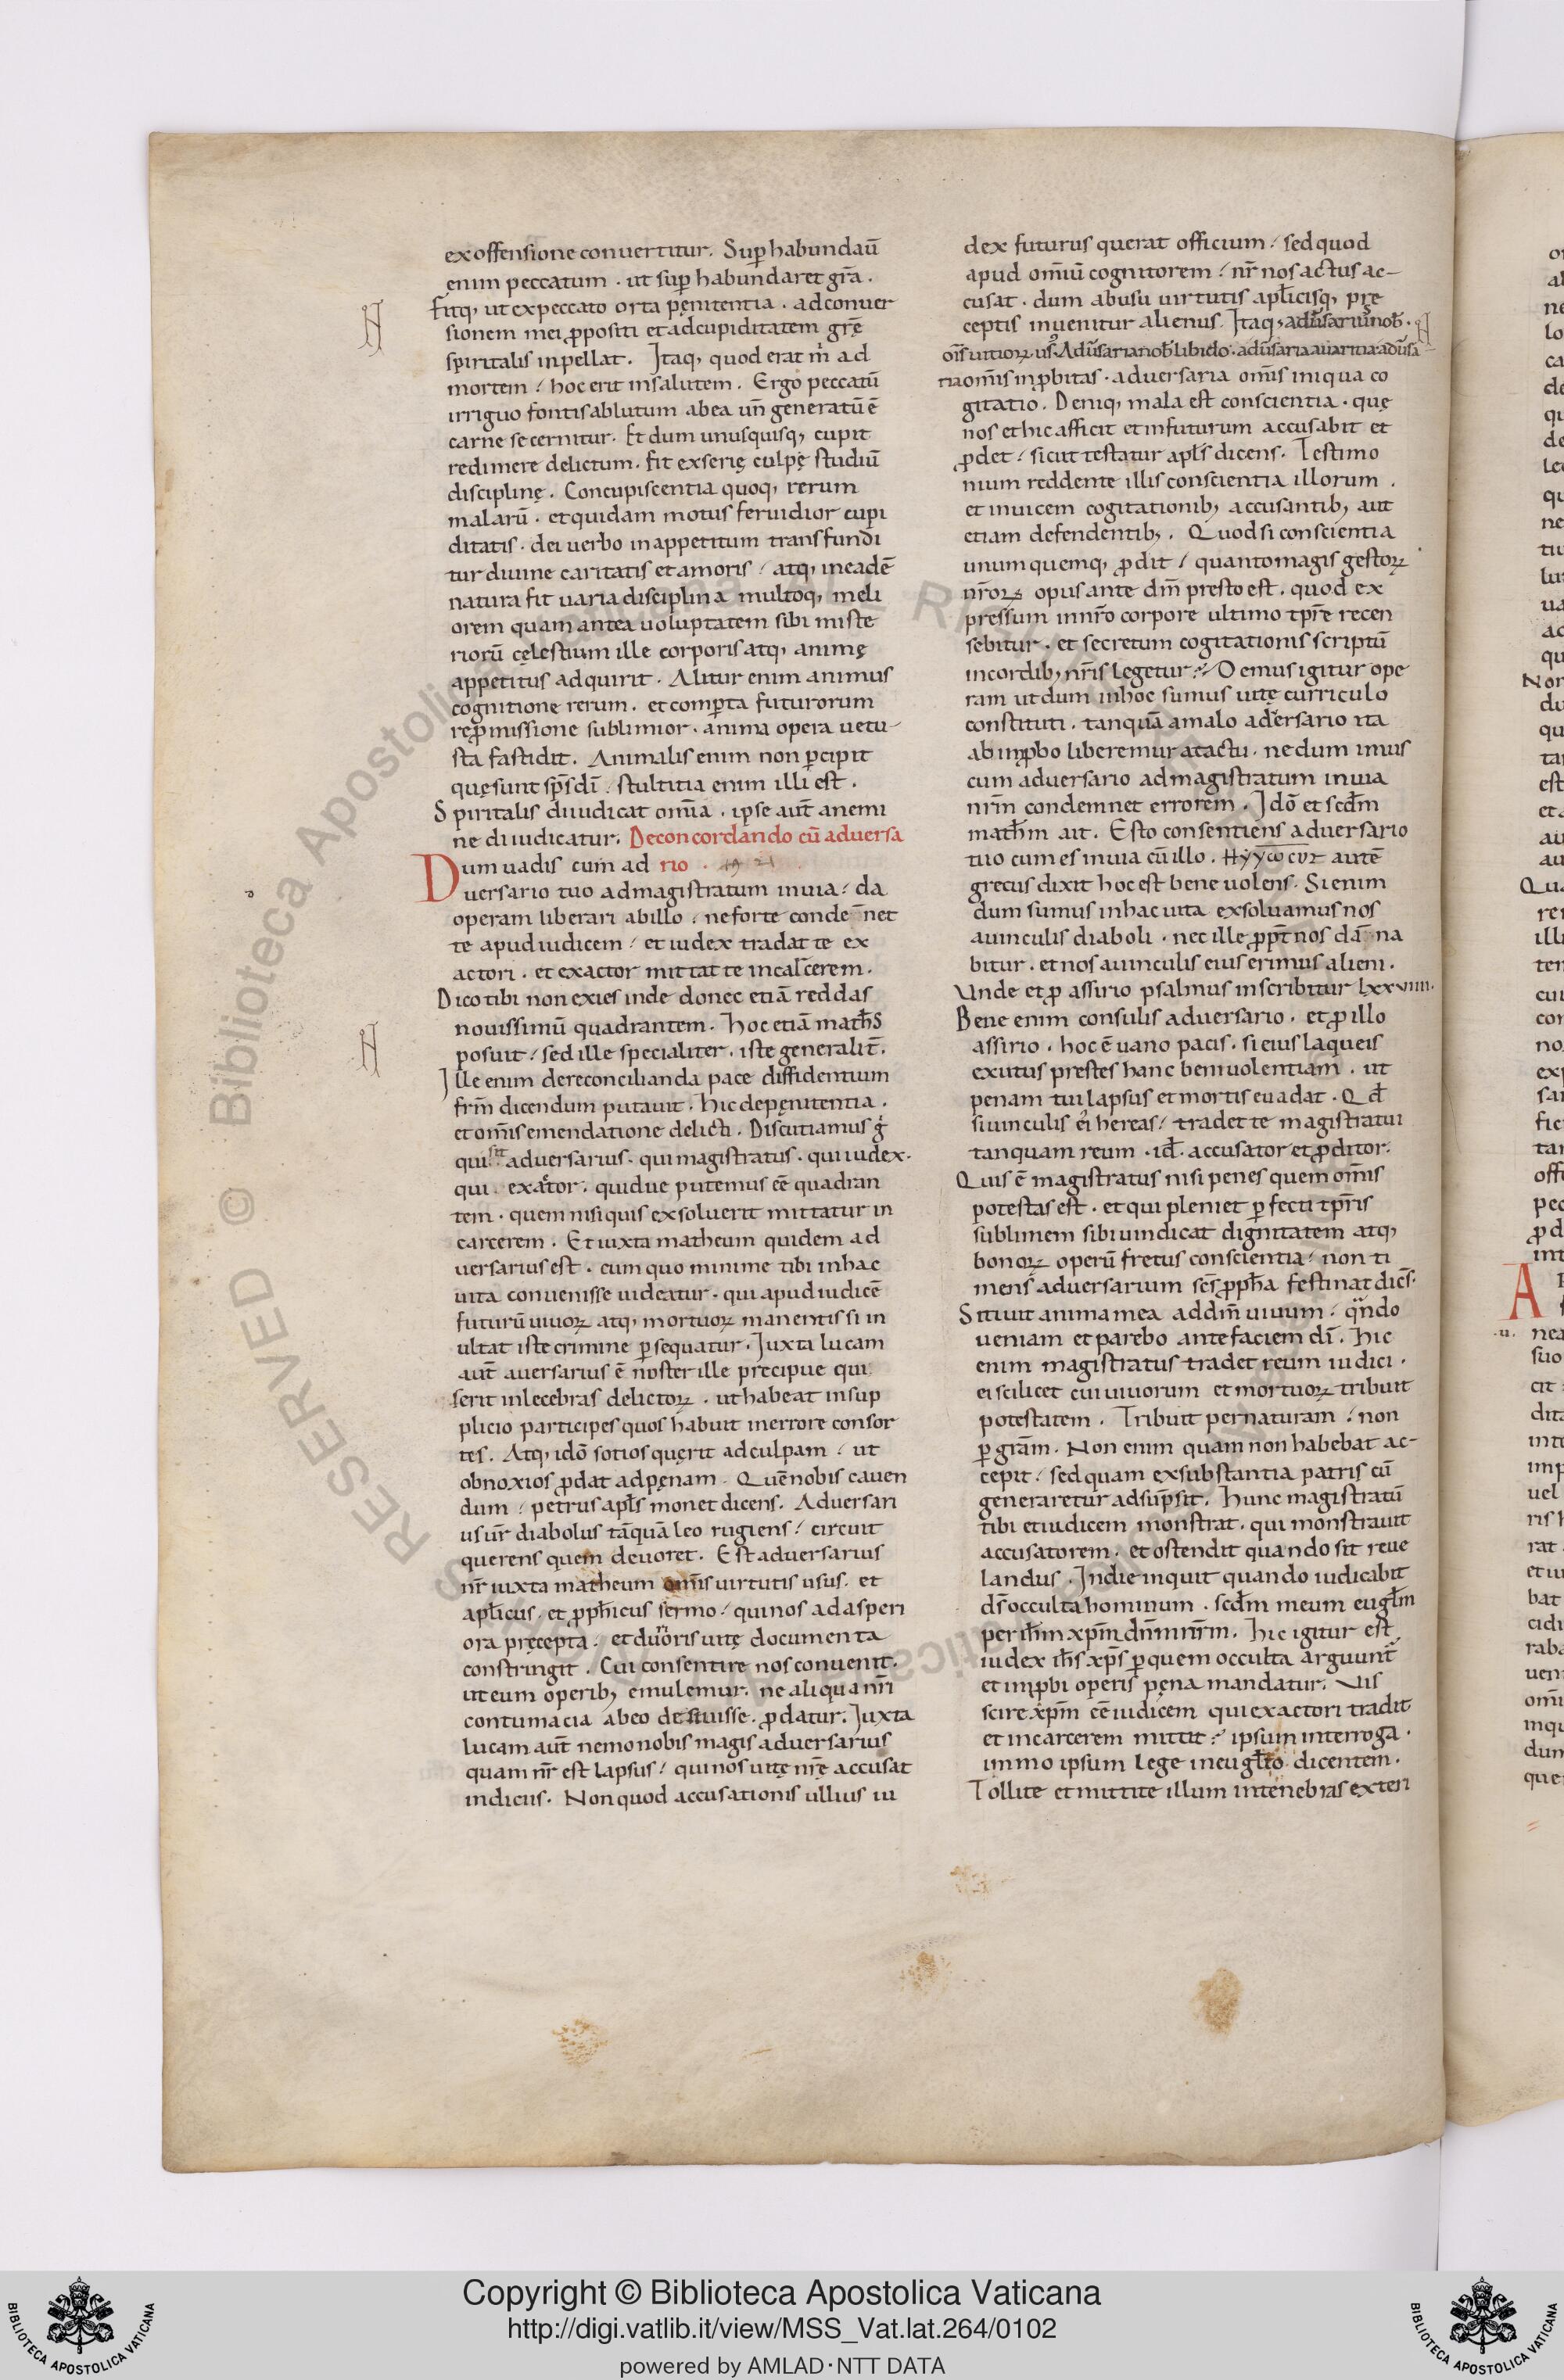 ex offensione conuertitur. Suꝑ habundaū
enim peccatum . ut suꝑ habundaret gr̄a .
Fitq, ut expeccato orta pęnitentia . ad conuer
sionem mei ꝓpositi et ad cupiditatem gr̄ę
spiritalis inpellat. Itaq, quod erat m̍ ad
mortem / hoc erit insalutem. Ergo peccatū
irriguo fontis ablutum abea un̄ generatū ē
carne secernitur. Et dum unusquisq, cupit
redimere delictum. fit exserię culpę studiū
disciplinę. Concupiscentia quoq, rerum
malarū . et quidam motus feruidior cupi
ditatis . dei uerbo in appetitum transfundi
tur diuine caritatis et amoris / atq, ineadē
natura fit uaria disciplina multoq, meli
orem quam antea uoluptatem sibi miste
riorū cęlestium ille corporis atq, animę
appetitus adquirit . Alitur enim animus
cognitione rerum . et comꝑta futurorum
reꝓmissione sublimior . anima opera uetu-
sta fastidit. Animalis enim non ꝑcipit
quęsunt sp̄s dī . stultitia enim illi est .
Spiritalis diiudicat om̄ia . ipse aut̄ anemi
ne diiudicatur. De concordando cū aduersa
Dum uadis cum ad rio .
uersario tuo ad magistratum inuia / da
operam liberari abillo . neforte conde ̄net
te apud iudicem / et iudex tradat te ex
actori . et exactor mittat te in carcerem.
Dico tibi non exies inde donec etiā reddas
nouissimū quadrantem. Hoc etiā math̄s
posuit / sed ille specialiter . iste generalit̄.
Ille enim dereconcilianda pace diffidentium
frm̄ dicendum putauit. Hic depęnitentia .
et om̄is emendatione delicti. Discutiamus g̍
qui sit aduersarius . qui magistratus . qui iudex.
qui exactor. quidue putemus eē quadran
tem . quem nisi quis exsoluerit mittatur in
carcerem . Et iuxta matheum quidem ad
uersarius est . cum quo minime tibi inhac
uita conuenisse uideatur . qui apud iudicē
futurū uiuoꝝ atq, mortuoꝝ manentis si in
ultat iste crimine ꝑsequatur. Iuxta lucam
aut̄ auersarius ē noster ille precipue qui
serit inlecebras delictoꝝ . ut habeat insup
plicio participes quos habuit inerrore consor
tes. Atq, idō sotios quęrit ad culpam / ut
obnoxios ꝓdat ad pęnam. Quē nobis cauen
dum / petrus apl̄s monet dicens. Aduersari
us ur̄ diabolus tāquā leo rugiens / circuit
querens quem deuoret. Est aduersarius
nr̄ iuxta matheum om̄is uirtutis usus. et
apl̄icus . et ꝓph̄icus sermo / qui nos ad asperi
ora pręcepta . et durioris uitę documenta
constringit . Cui consentire nos conuenit.
ut eum operib, emulemur. ne aliqua nr̄i
contumacia abeo destuisse . ꝓdatur. Iuxta
lucam aut̄ nemo nobis magis aduersarius
quam nr̄ est lapsus / qui nos uitę nr̄ę accusat
indiciis. Non quod accusationis ullius iu
dex futurus querat officium / sed quod
apud om̄iū cognitorem / nr̄ nos actus ac-
cusat . dum abusu uirtutis apl̄icisq, pre
ceptis inuenitur alienus. Itaq, adūsariū nob̄ .
oīs uitioꝝ us̓. Adūsaria nob̄ libido . adūsaria auaritia . adūsa
ria om̄is inꝓbitas . aduersaria om̄is iniqua co
gitatio. Deniq, mala est conscientia . quę
nos et hic afficit et infuturum accusabit et
ꝓdet / sicut testatur apl̄s dicens. Testimo
nium reddente illis conscientia illorum .
et inuicem cogitationib, accusantib, aut
etiam defendentib, . Quod si conscientia
unumquemq, ꝓdit / quanto magis gestoꝝ
nr̄oꝝ opus ante dm̄ presto est . quod ex
pressum innr̄o corpore ultimo tpr̄e recen
sebitur . et secretum cogitationis scriptū
incordib, nr̄is legetur. Demus igitur ope
ram ut dum inhoc sumus uitę curriculo
constituti . tanquā amalo aduersario ita
ab inꝓbo liberemur atactu . ne dum imus
cum aduersario ad magistratum inuia
nrm̄ condemnet errorem . Idō et scd̄m
math̄m ait. Esto consentiens aduersario
tuo cum es inuia cū illo. autē
grecus dixit hoc est beneuolens. Si enim
dum sumus inhac uita exsoluamus nos
auinculis diaboli . nec ille ꝓpt̄ nos dā na
bitur . et nos auinculis eius erimus alieni.
Unde et ꝓ assirio psalmus inscribitur lxxuiiii.
Bene enim consulis aduersario . et ꝓ illo
assirio . hoc ē uano pacis . si eius laqueis
exutus prestes hanc beniuolentiam . ut
penam tui lapsus et mortis euadat . Qd̄
si uinculis ei hereas / tradet te magistratui
tanquam reum . id̄ . accusator et ꝓditor.
Quis ē magistratus nisi penes quem om̄is
potestas est . et qui pleniet ꝑfecti tpr̄is
sublimem sibi uindicat dignitatem atq,
bonoꝝ operū fretus conscientia / non ti
mens aduersarium sc̄s ꝓph̄a festinat dic̄s.
Sitiuit anima mea ad dm̄ uiuum / qn̄do
ueniam et parebo ante faciem dī. Hic
enim magistratus tradet reum iudici .
ei scilicet cui uiuorum et mortuoꝝ tribuit
potestatem . Tribuit per naturam / non
ꝑ gram̄. Non enim quam non habebat ac-
cepit / sed quam exsubstantia patris cū
generaretur adsūpsit. Hunc magistratū
tibi et iudicem monstrat . qui monstrauit
accusatorem . et ostendit quando sit reue
landus . In die inquit quando iudicabit
ds̄ occulta hominum . scd̄m meum eugl̄m
per ih̄m xpm̄ dn̄m nrm̄. Hic igitur est
iudex ih̄s xp̄s ꝑ quem occulta arguunt̄
et inꝓbi operis pęna mandatur. Vis
scire xpm̄ eē iudicem qui exactori tradit
et incarcerem mittit / ipsum interroga .
immo ipsum lege in eugl̄io dicentem .
Tollite et mittite illum in tenebras exteri
Copyright © Biblioteca Apostolica Vaticana
http://digi.vatlib.it/view/MSS_Vat.lat.264/0102
powered by AMLAD·NTT DATA